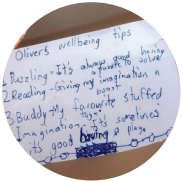 Oliver's wellbeing tips
1. Puzzling - It's always good having
a puzzle to solve
2. Reading - Giving my imagination a
boost
3. Buddy - My favourite stuffed
toy
Imagination - It's sometimes
its good having a play